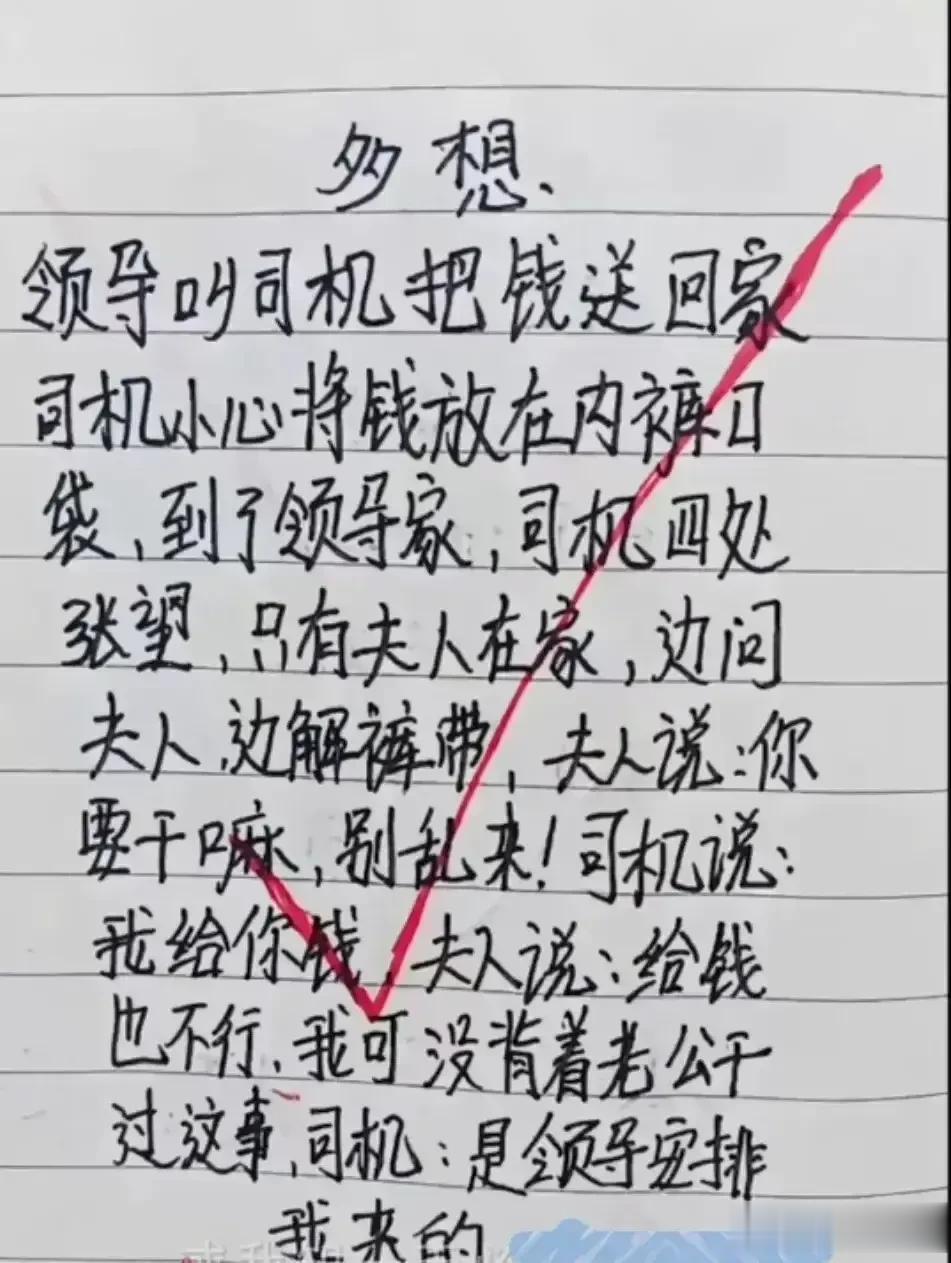 多想、
领导叫司机把钱送回家
司机小心将钱放在内裤口
袋,到了领导家,司机四处
张望,只有夫人在家,边问
夫人,边解裤带,夫人说:你
要干嘛,别乱来!司机说:
我给你钱,夫人说:给钱
也不行、我可没背着老公干
过这事,司机:是领导安排
我来的